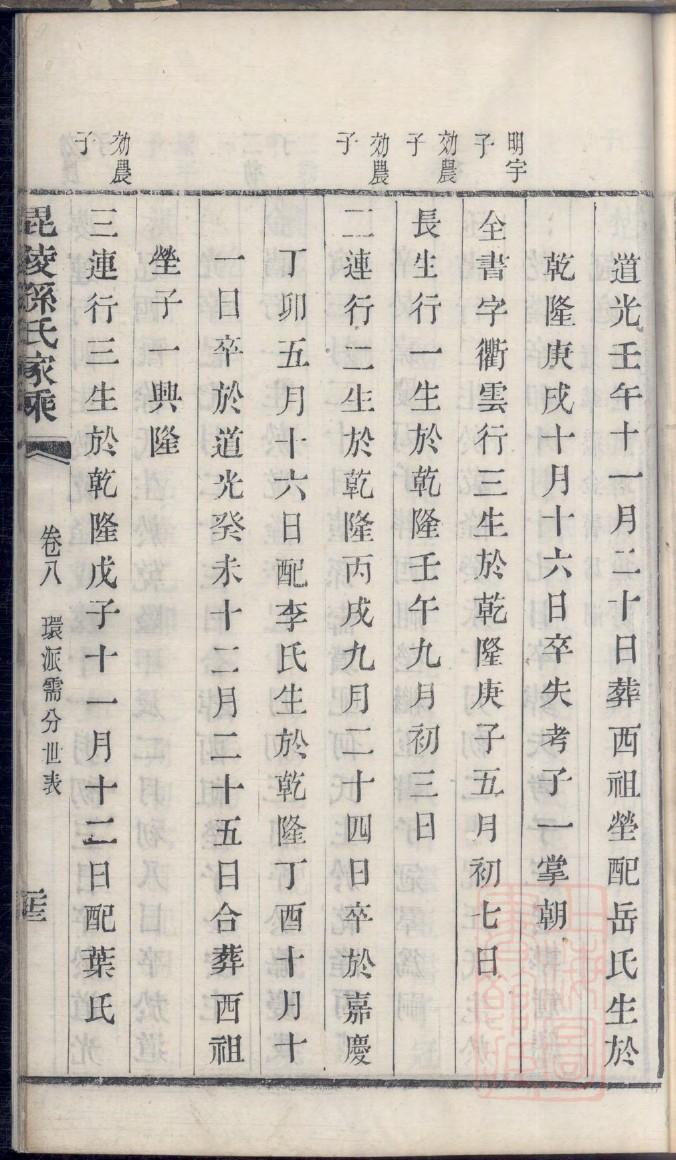 道光壬午十一月二十日葬西祖塋配岳氏生於
乾隆庚戌十月十六日卒失考子一掌朝
明宇
子
全書字衢雲行三生於乾隆庚子五月初七日
効農
子
長生行一生於乾隆壬午九月初三日
効農
子
二連行二生於乾隆丙戌九月二十四日卒於嘉慶
丁卯五月十六日配李氏生於乾隆丁酉十月十
一日卒於道光癸未十二月二十五日合葬西祖
塋子一興隆
効農
子
三連行三生於乾隆戊子十一月十二日配葉氏
毘陵孫氏家乘
卷八 環派需分世表